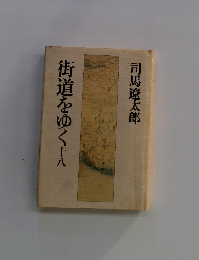 司馬遼太郎
街道をゆく十八